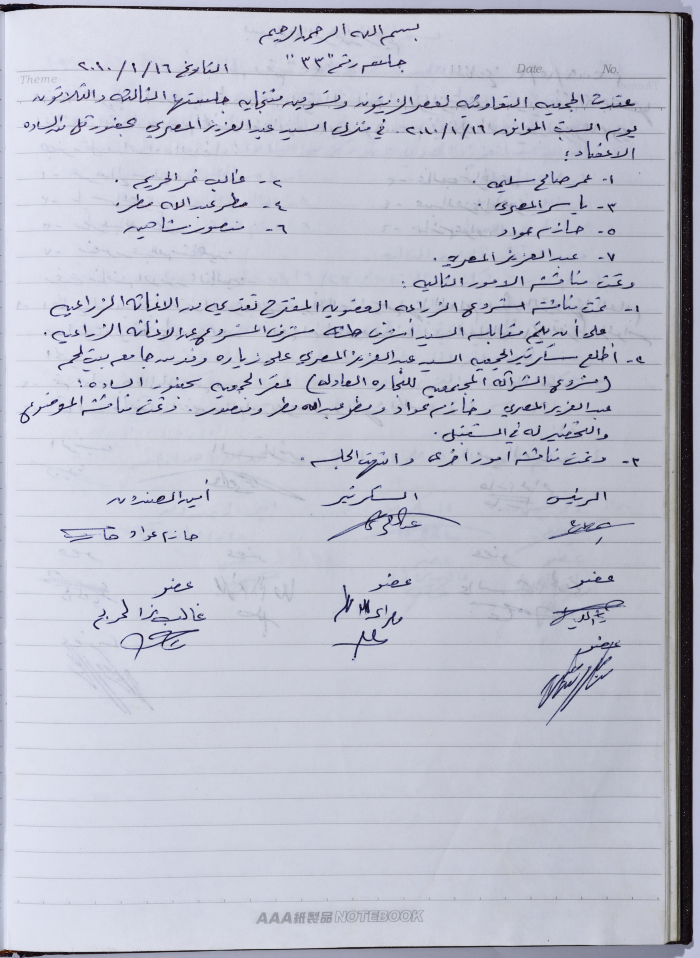 بسم الله الرحمن الرحيم
جلسه رقم "٣٣" التاريخ ٢٠١٠/١/١٦
Theme Date No.
عقدت الجمعيه التعاونيه لعصر الزيتون وتسويق منتجاته جلستها الثالثه والثلاثون
يوم السبت الموافق ٢٠١٠/١/١٦ في منزل السيد عبد العزيز المصري بحضور كل من الساده
الاعضاء:
١- عمر صالح سليمه . ٢- غالب نمر الحريم .
٣- ياسر المصري . ٤- مطر عبد الله مطر
٥- حازم عواد ٦- منصور شاهين
٧- عبد العزيز المصري .
وتمت مناقشة الامور التاليه :
١- تمت مناقشة المشروع الزراعي المقترح تقديمه من الاغاثه الزراعيه
على أن يتم مقابله السيد أشرف مشرف المشروع الاغاثه الزراعيه .
٢- أطلع سكرتير الجمعيه السيد عبد العزيز المصري على زياره وفد من جامعه بيت لحم
(مشروع الشراكه المجتمعيه للتجاره العادله) لمقر الجمعيه بحضور الساده :
عبد العزيز المصري وحازم عواد ومطر عبد الله مطر ومنصور . وتمت مناقشة الموضوع
والتحضير له في المستقبل .
٣- وتمت مناقشة أمور أخرى وانتهت الجلسه .
الرئيس السكرتير أمين الصندوق
حازم عواد
عضو عضو عضو
غالب نمر الحريم
عضو
AAA紙製品 NOTEBOOK